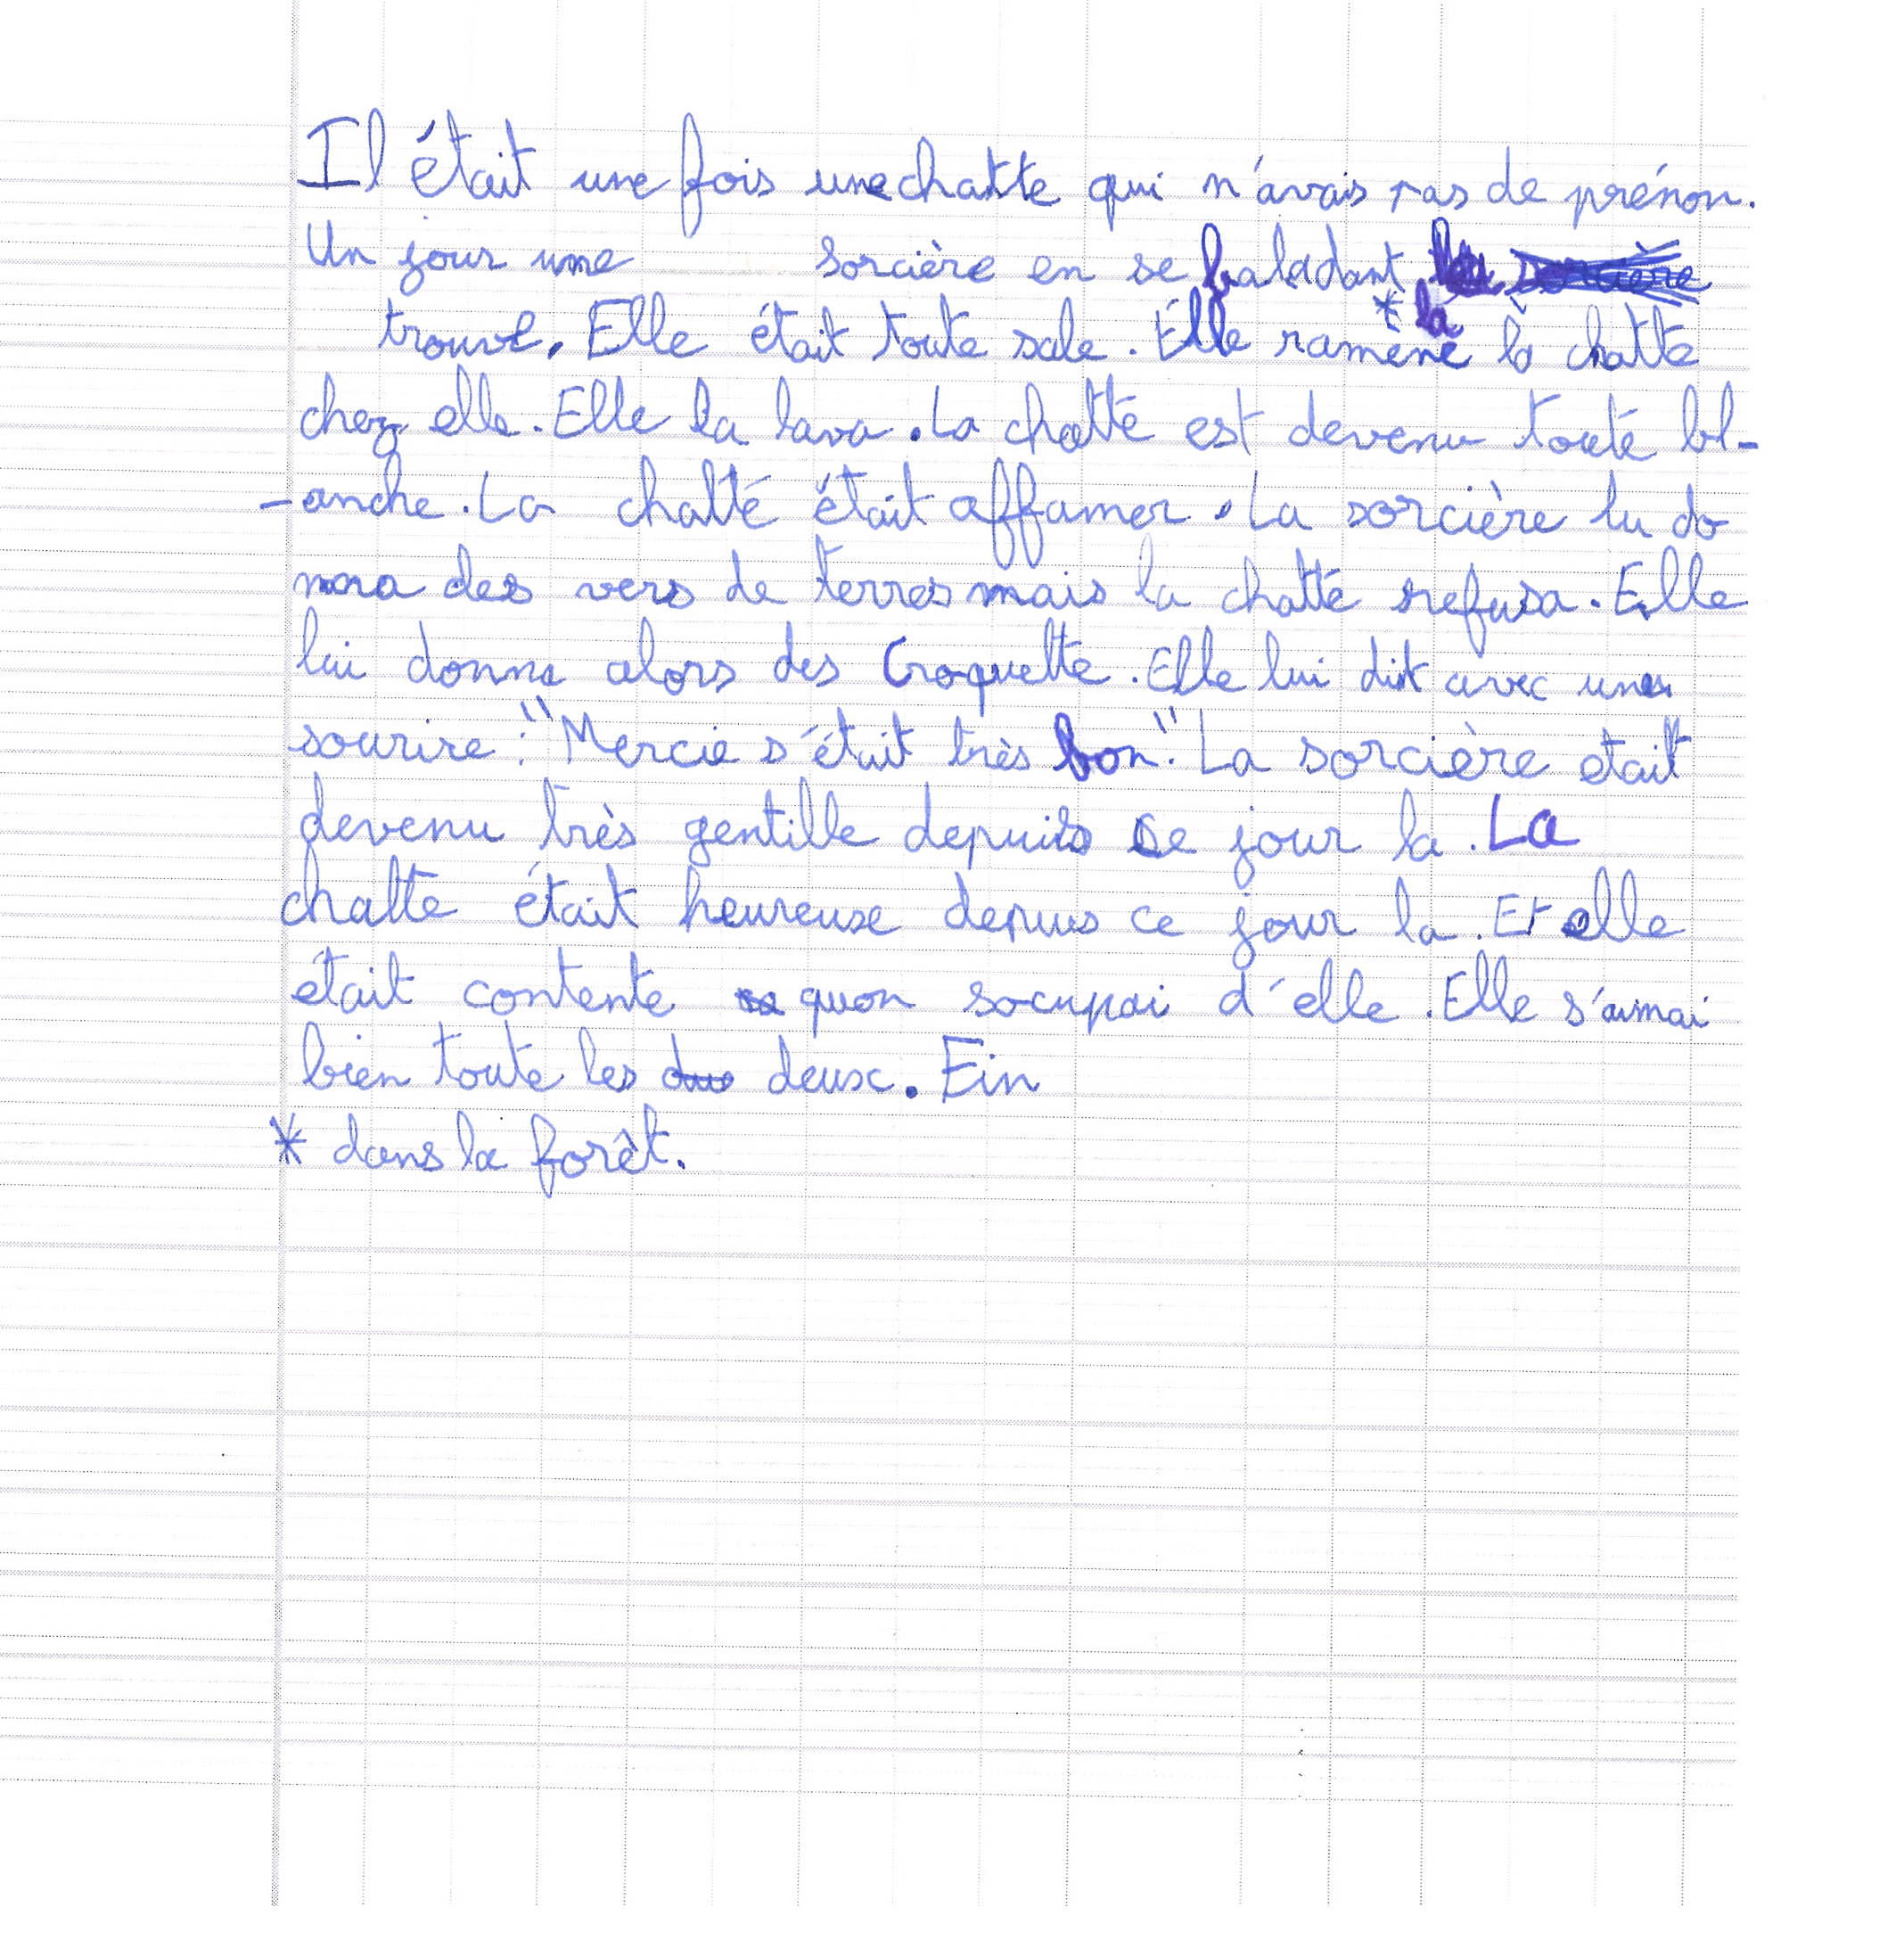 Il était une fois une chatte qui n'avais pas de prénon.
Un jour une sorcière en se baladant * la
trouve. Elle était toute sale. Elle ramène la chatte
chez elle. Elle la lava. La chatte est devenu toute bl-
-anche. La chatte était affamer. La sorcière lu do
nna des vers de terres mais la chatte refusa. Elle
lui donna alors des Croquette. Elle lui dit avec un
sourire : "Mercie s'était très bon". La sorcière etait
devenu très gentille depuis ce jour la. La
chatte était heureuse depuis ce jour la. Et elle
était contente quon socupai d'elle. Elle s'aimai
bien toute les deux. Fin
* dans la forêt.